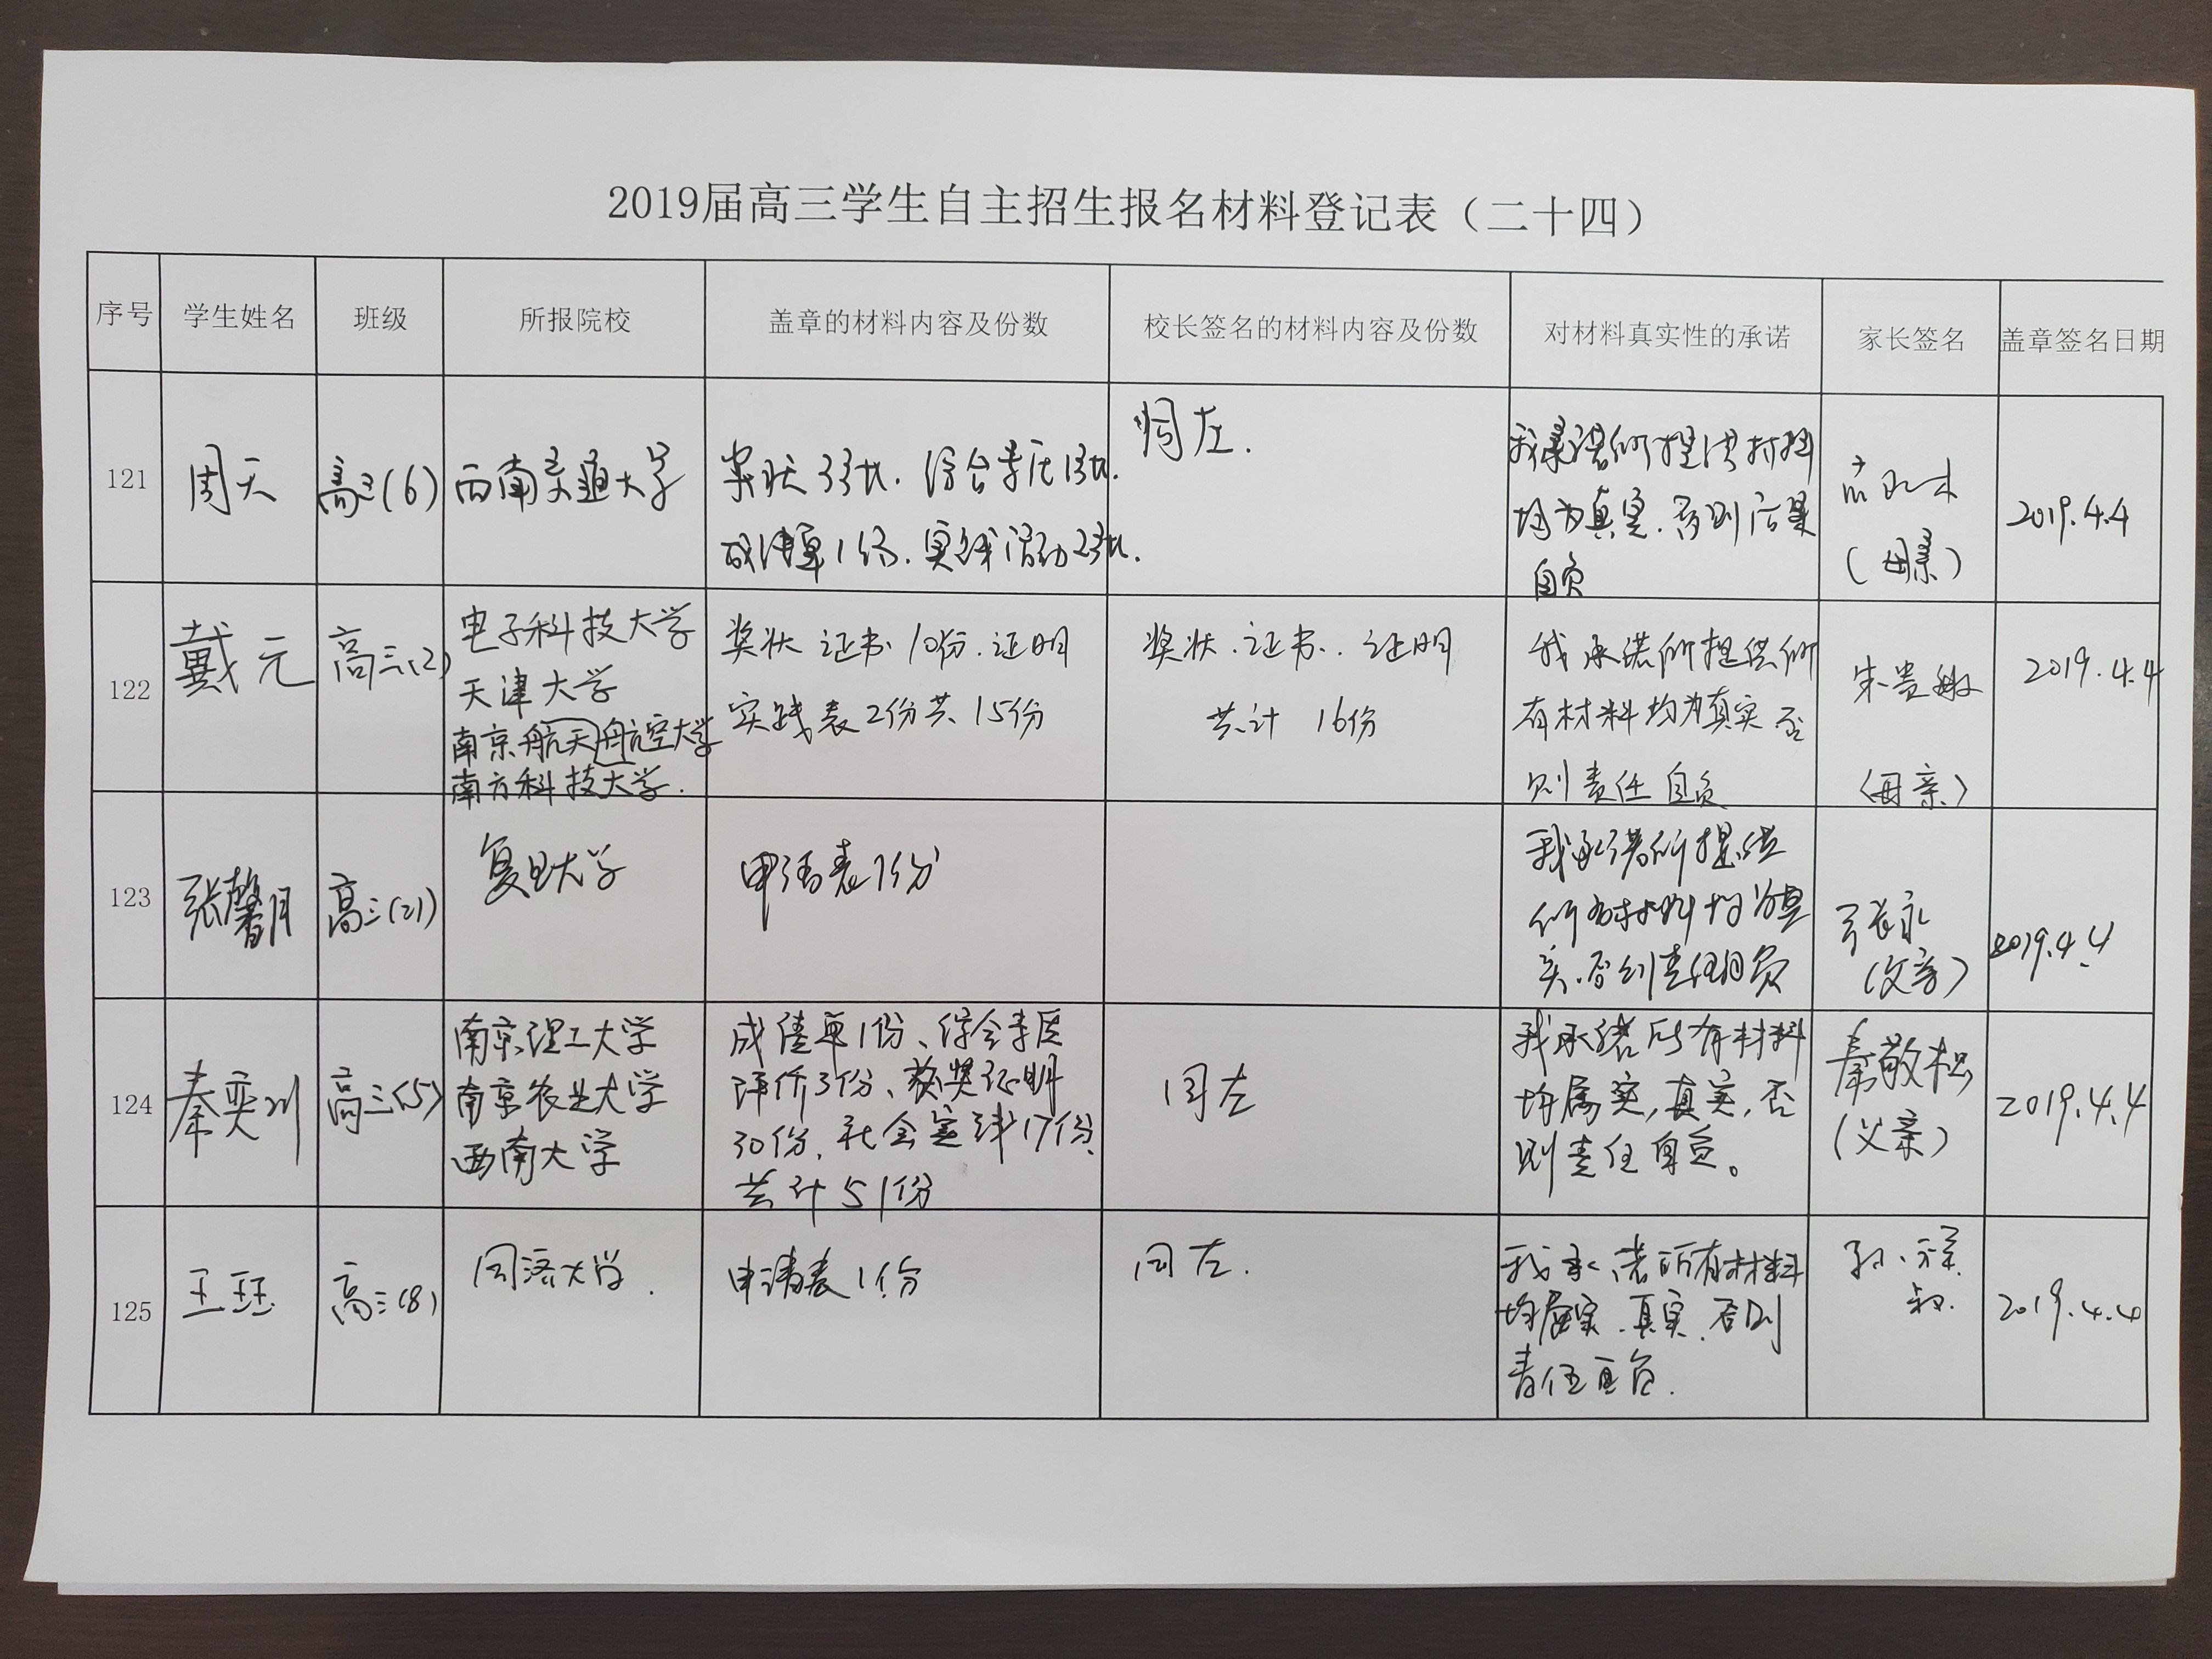 2019届高三学生自主招生报名材料登记表（二十四）
序号 学生姓名 班级 所报院校 盖章的材料内容及份数 校长签名的材料内容及份数 对材料真实性的承诺 家长签名 盖章签名日期
121 周天 高三(6) 西南交通大学
奖状33张.综合素质13张.
成绩单1份.实践活动23张.
同左.
我承诺所提供材料
均为真实.否则后果
自负
(母亲)
2019.4.4
122 戴元 高三(2)
电子科技大学
天津大学
南京航天航空大学
南方科技大学.
奖状 证书10份.证明
实践表2份共15份
奖状.证书..证明
共计 16份
我承诺所提供所
有材料均为真实 否
则责任自负
朱贵敏
(母亲)
2019.4.4
123 张馨月 高三(21)
复旦大学
申请表1份
我承诺所提供
所有材料均为真
实.否则责任自负
张永
(父亲)
2019.4.4
124 秦奕川 高三(5)
南京理工大学
南京农业大学
西南大学
成绩单1份、综合素质
评价3份、获奖证明
30份、社会实践17份、
共计51份
同左
我承诺所有材料
均属实,真实,否
则责任自负。
秦敬松
(父亲)
2019.4.4
125 王珏 高三(8)
同济大学.
申请表1份
同左.
我承诺所有材料
均属实.真实.否则
责任自负.
2019.4.4